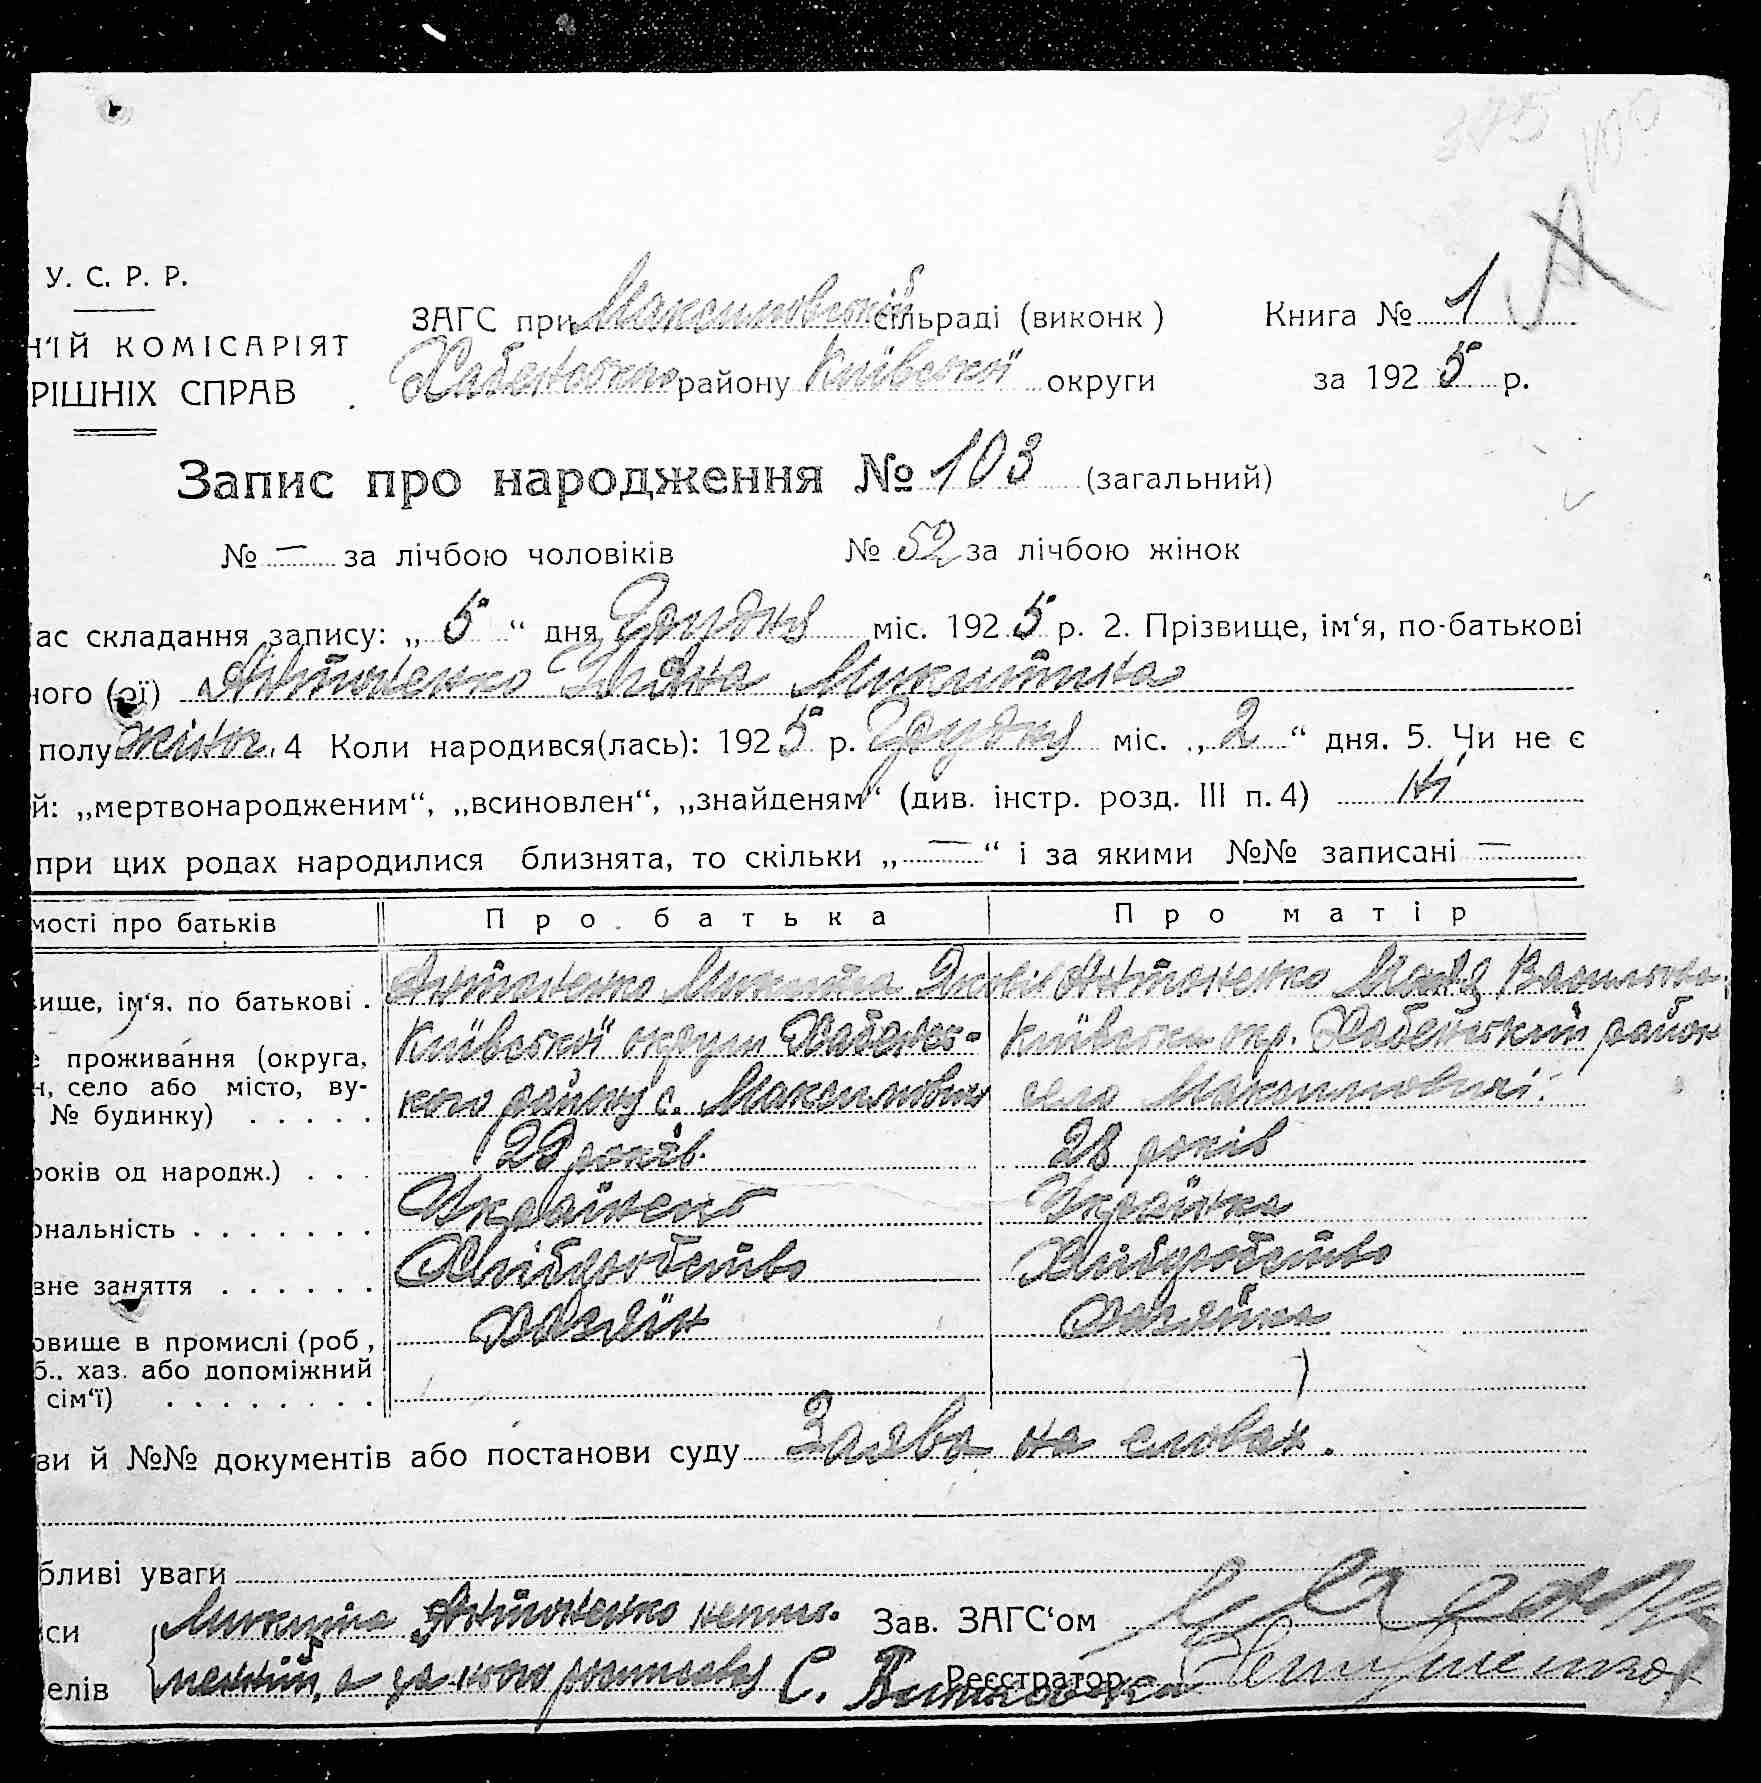 375
У. С. Р. Р.
Н'ІЙ КОМІСАРІЯТ
РІШНІХ СПРАВ
ЗАГС при Максимовській сільраді (виконк)
Хабенського району Київської округи
Книга № 1
за 1925 р.
Запис про народження № 103 (загальний)
№ — за лічбою чоловіків № 52 за лічбою жінок
ас складання запису: „5“ дня Грудня міс. 1925 р. 2. Прізвище, ім‘я, по-батькові
ного (ої) Антоненко Уляна Микитина
полу жіноч. 4 Коли народився(лась): 1925 р. Грудня міс. „2“ дня. 5. Чи не є
й: „мертвонародженим“, „всиновлен“, „знайденям“ (див. інстр. розд. III п. 4) Ні
при цих родах народилися близнята, то скільки „—“ і за якими №№ записані —
мості про батьків Про батька Про матір
вище, ім‘я, по батькові . Антоненко Микита Антоненко
е проживання (округа, Київської округи Хабенсь- Київська окр. Хабенський район
н, село або місто, ву- кого району с. Максимовичі село Максимовичі
№ будинку) . . . . .
років од народж.) . . . 29 років. 28 років
ональність . . . . . . . Українець Українка
вне заняття . . . . . . Хліборобство Хліборобство
овище в промислі (роб, Хазяїн Хазяйка
б., хаз. або допоміжний
сім‘ї) . . . . . . . .
ви й №№ документів або постанови суду Заява на словах.
бливі уваги
си Микита Антоненко непись- Зав. ЗАГС‘ом
елів менний, а за його росписався С. Реєстратор